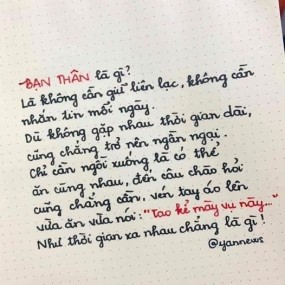 BẠN THÂN là gì?
Là không cần giữ liên lạc, không cần
nhắn tin mỗi ngày.
Dù không gặp nhau thời gian dài,
cũng chẳng trở nên ngần ngại.
Chỉ cần ngồi xuống là có thể
ăn cùng nhau, đến câu chào hỏi
cũng chẳng cần, vén tay áo lên
vừa ăn vừa nói: "Tao kể mày vụ này..."
Như thời gian xa nhau chẳng là gì!
@yannews